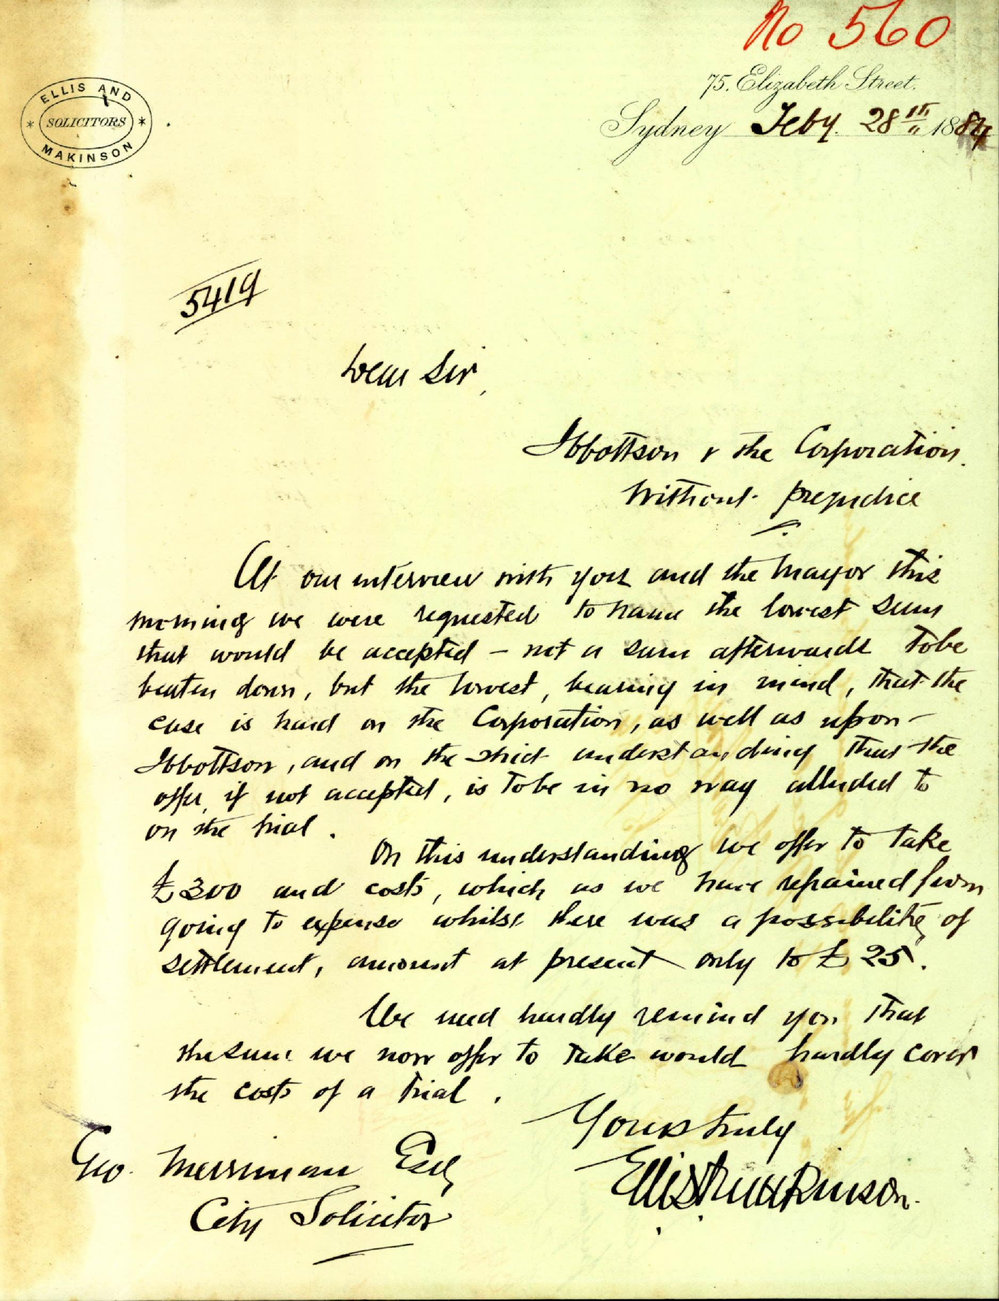 No 560
ELLIS AND
SOLICITORS
MAKINSON
75. Elizabeth Street.
Sydney Feby. 28th 1884
5419
Dear Sir,
Ibbottson v the Corporation.
Without prejudice
At our interview with you and the Mayor this
morning we were requested to name the lowest sum
that would be accepted – not a sum afterwards to be
beaten down, but the lowest, bearing in mind, that the
case is hard on the Corporation, as well as upon –
Ibbottson, and on the strict understanding that the
offer, if not accepted, is to be in no way alluded to
on the trial.
On this understanding we offer to take
£300 and costs, which, as we have refrained from
going to expense whilst there was a possibility of
settlement, amount at present only to £25.
We need hardly remind you that
the sum we now offer to take would hardly cover
the costs of a trial.
Yours truly
Ellis & Makinson.
Geo. Merriman Esq
City Solicitor